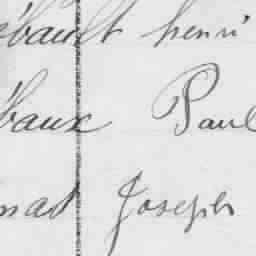 ébault henri
baux Paul
nast Joseph